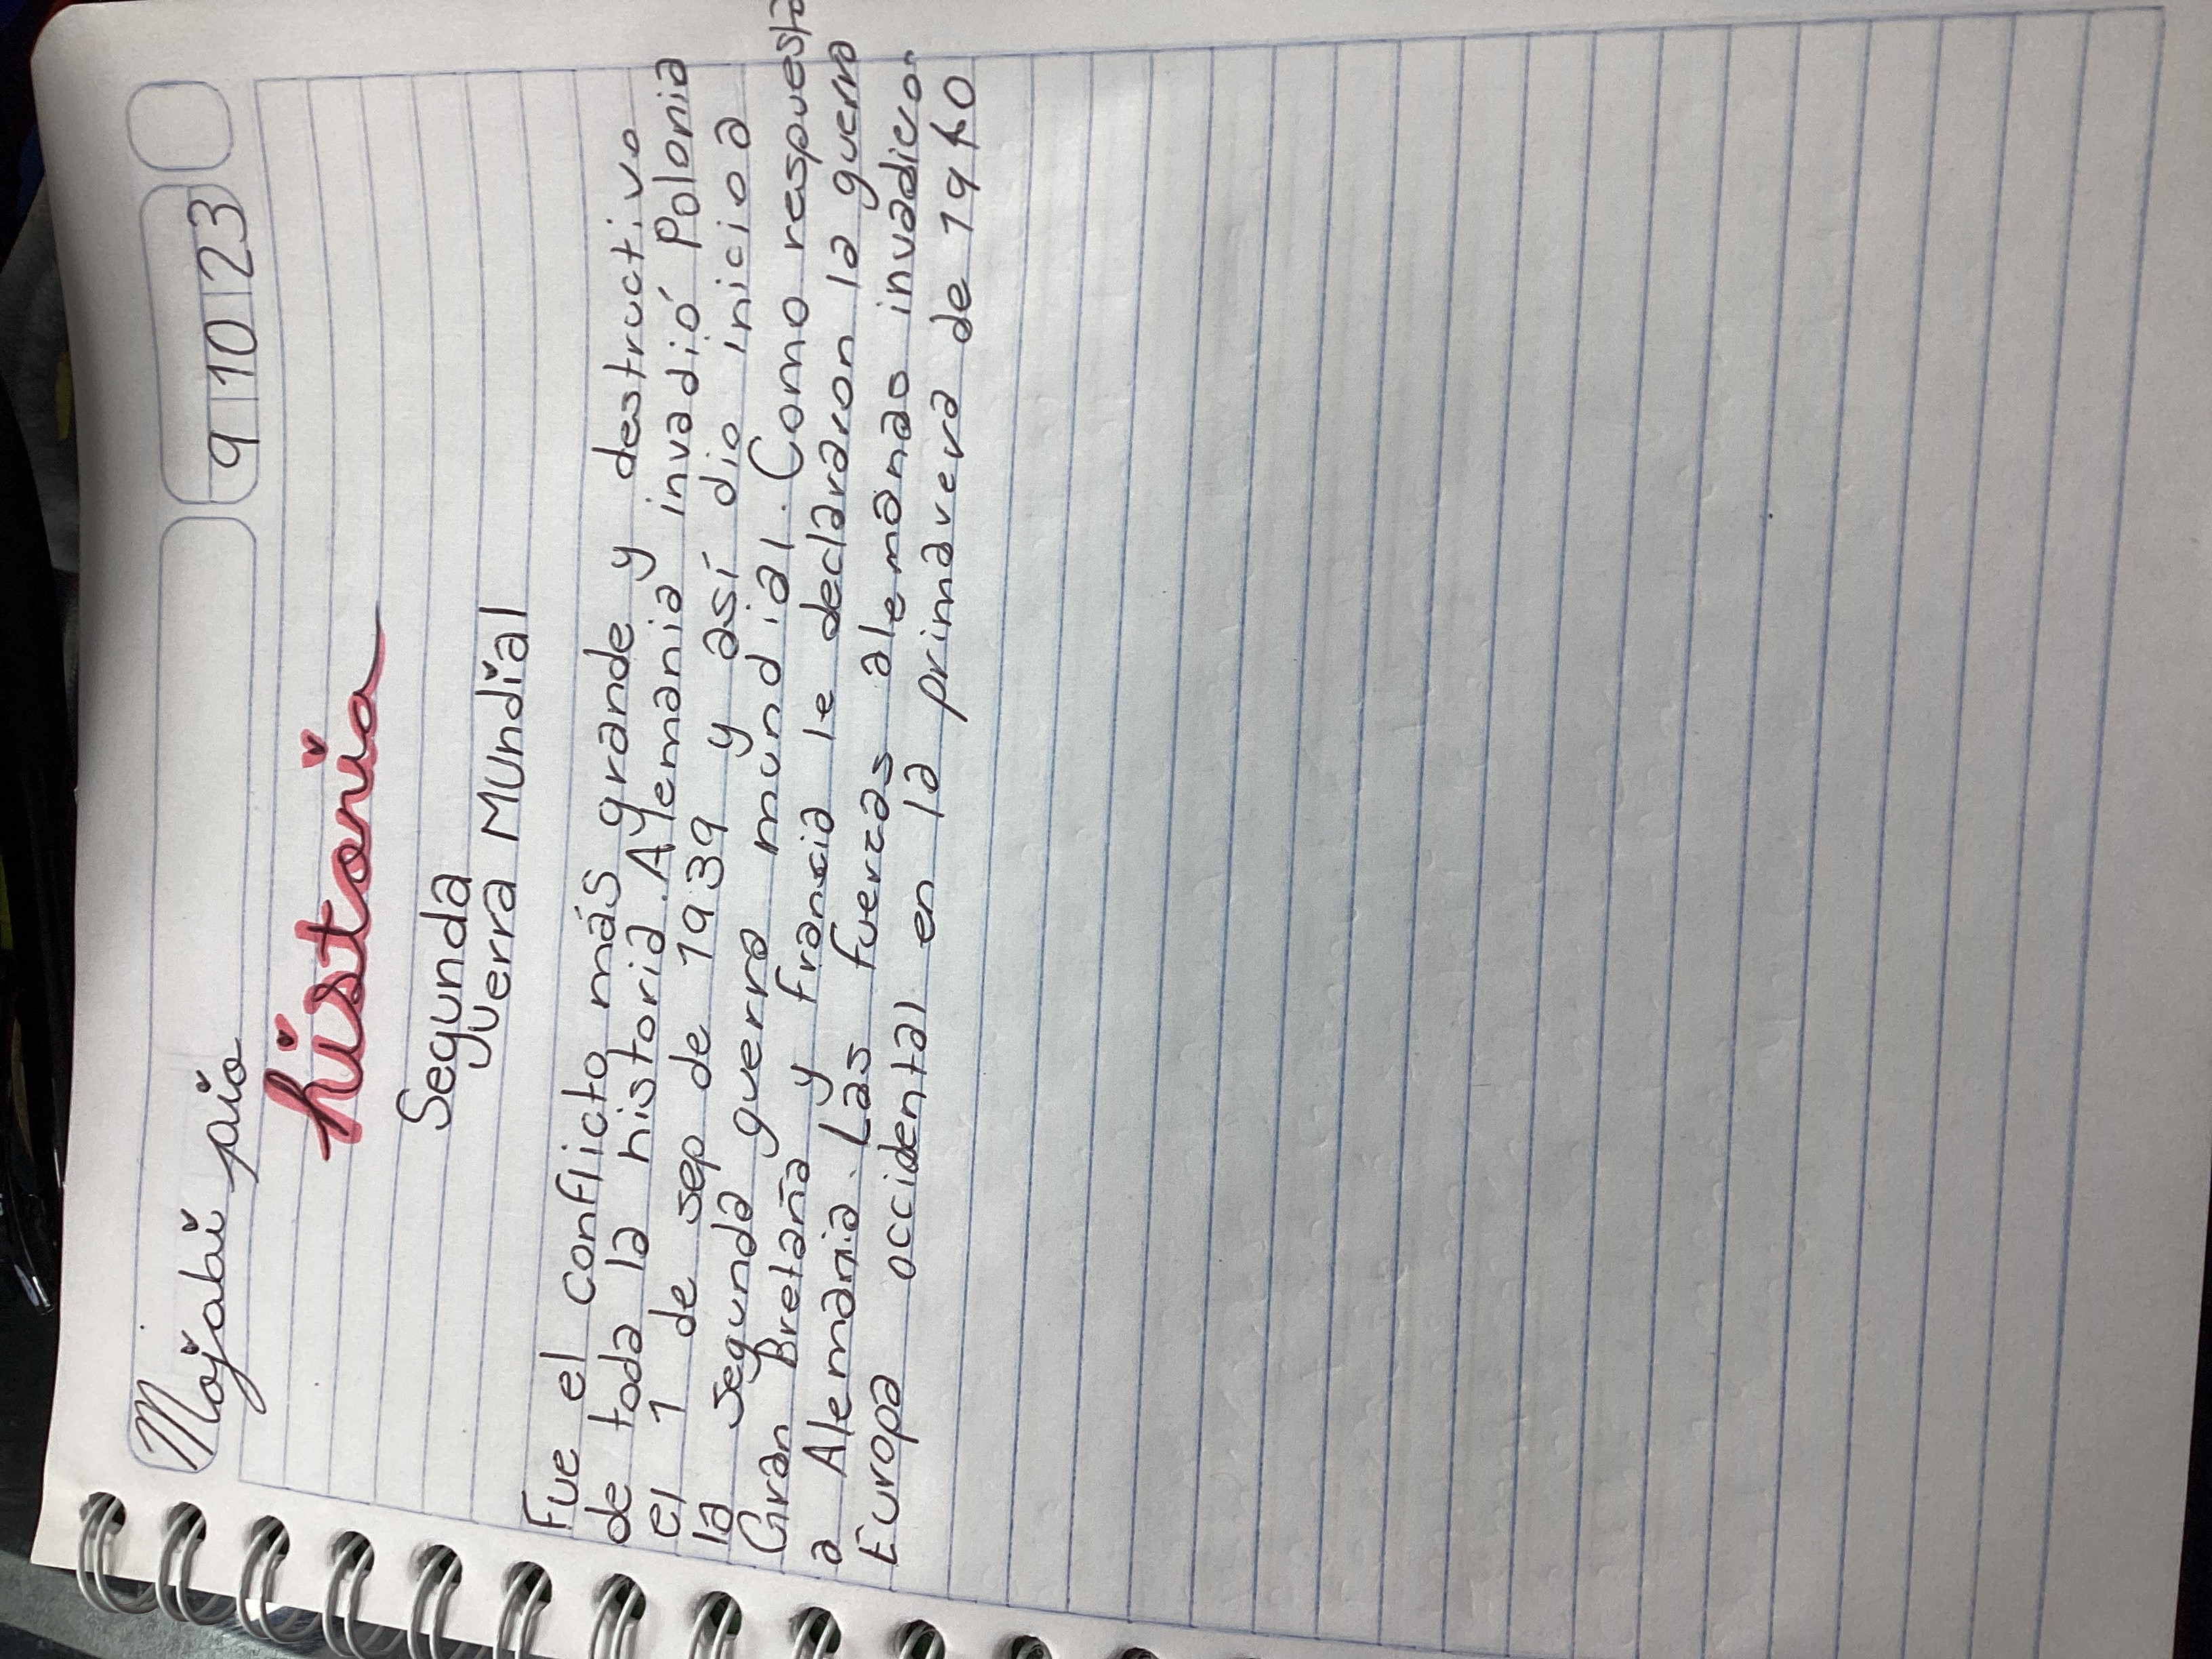 Majabi pio
9 10 23
historia
Segunda
Guerra Mundial
Fue el conflicto más grande y destructivo
de toda la historia. Alemania invadió Polonia
el 1 de sep de 1939 y así dio inicio a
la segunda guerra mundial. Como respuesta
Gran Bretaña y francia le declararon la guerra
a Alemania. Las fuerzas alemanas invadieron
Europa occidental en la primavera de 1940